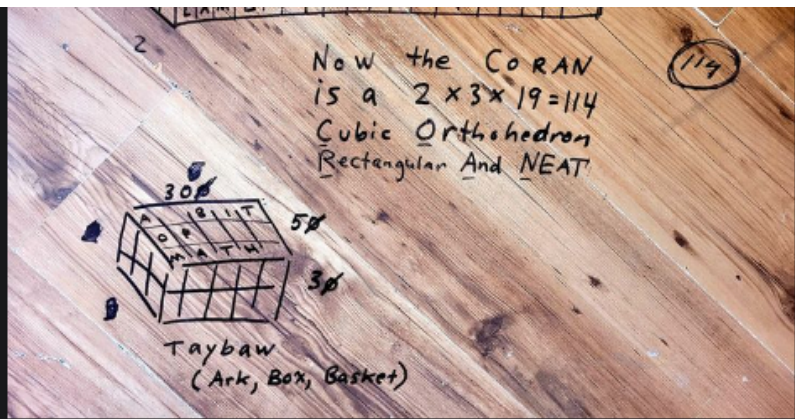 LAM
2
Now the CORAN
is a 2 x 3 x 19 = 114
Cubic Orthohedron
Rectangular And NEAT
114
300
50
30
A BIT
OR
MATH
Taybaw
(Ark, Box, Basket)